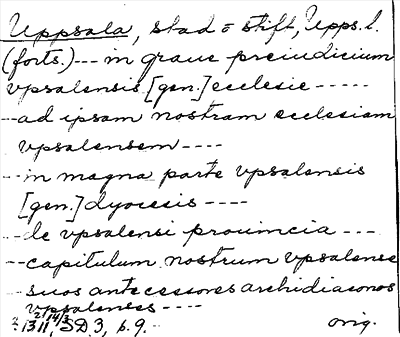 Uppsala, stad o stift, Upps. l.
(forts.) --- in graue preiudicium
vpsalensis [gen.] ecclesie -----
--ad ipsam nostram ecclesiam
vpsalensem ----
--in magna parte vpsalensis
[gen.] dyocesis ----
--de vpsalensi prouincia ---
--capitulum nostrum vpsalense
--suos antecessores archidiaconos
vpsalenses ----
1311 14/3, SD 3, s. 9. orig.